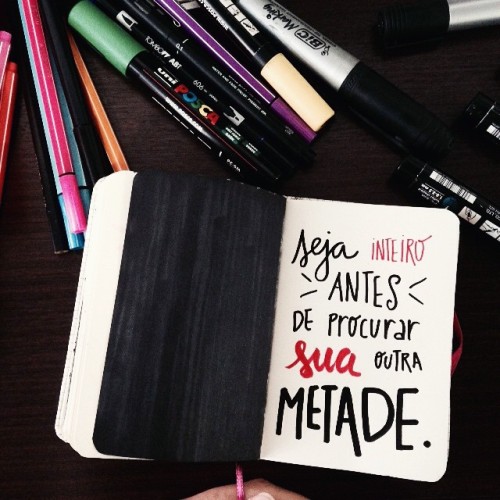 BIC Marking
TOMBOW ABT
uni POSCA
seja INTEIRO
ANTES
DE PROCURAR
sua OUTRA
METADE.